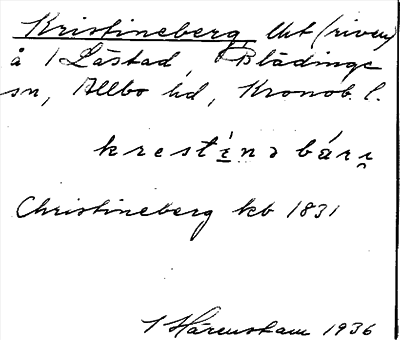 Kristineberg lht (riven)
å 1 Låstad, Blädinge
sn, Allbo hd, Kronob. l.
krestínəbárı̭
Christineberg kb 1831
Härenstam 1936